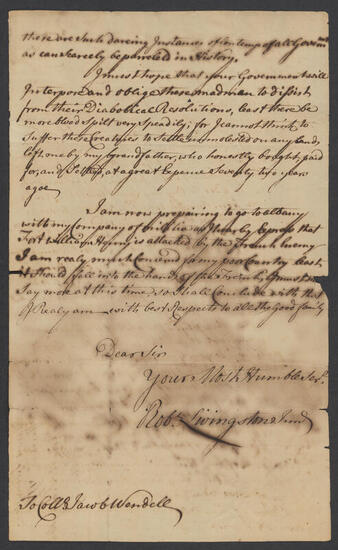 there are such dareing Instances of Contemp of all Governmt
as can scarcely be pareleled in History.
I must hope that your Government will
Interpose and oblige those madmen to desist
from their Diabolical Resolutions, least there be
more Blood Spilt very Speedily; for I cannot think to
Suffer those Creatures to Settle unmolested on any Land,
left one by my Grandfather, who honestly bought, paid
for, and Settled, at a great Expence Seventy two years
agoe
I am now prepairing to go to albany
with my Company of militia as I hear by Express that
Fort William Henry is attacked by the French Enemy
I am realy much Concernd for my poor Country least
it should fall into the hands of the French, I must
Say more at this time, so Shall Conclude with that
I Realy am with best Respects to all the Good family
Dear Sir
Your Most Humble Ser.t
Rob.t Livingston Jun.r
To Coll.o Jacob Wendell